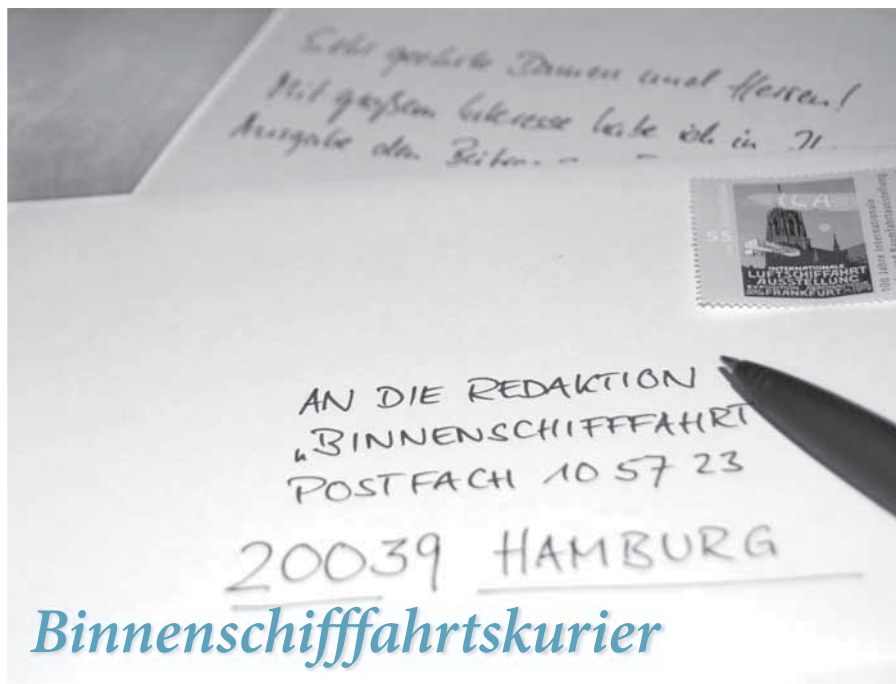 Sehr geehrte Damen und Herren!
Mit großem Interesse habe ich in 71.
Ausgabe den
ILA
55
INTERNATIONALE
LUFTSCHIFFAHRT
AUSSTELLUNG
FRANKFURT
100 Jahre Internationale
AN DIE REDAKTION
„BINNENSCHIFFFAHRT
POSTFACH 10 57 23
20039 HAMBURG
Binnenschifffahrtskurier